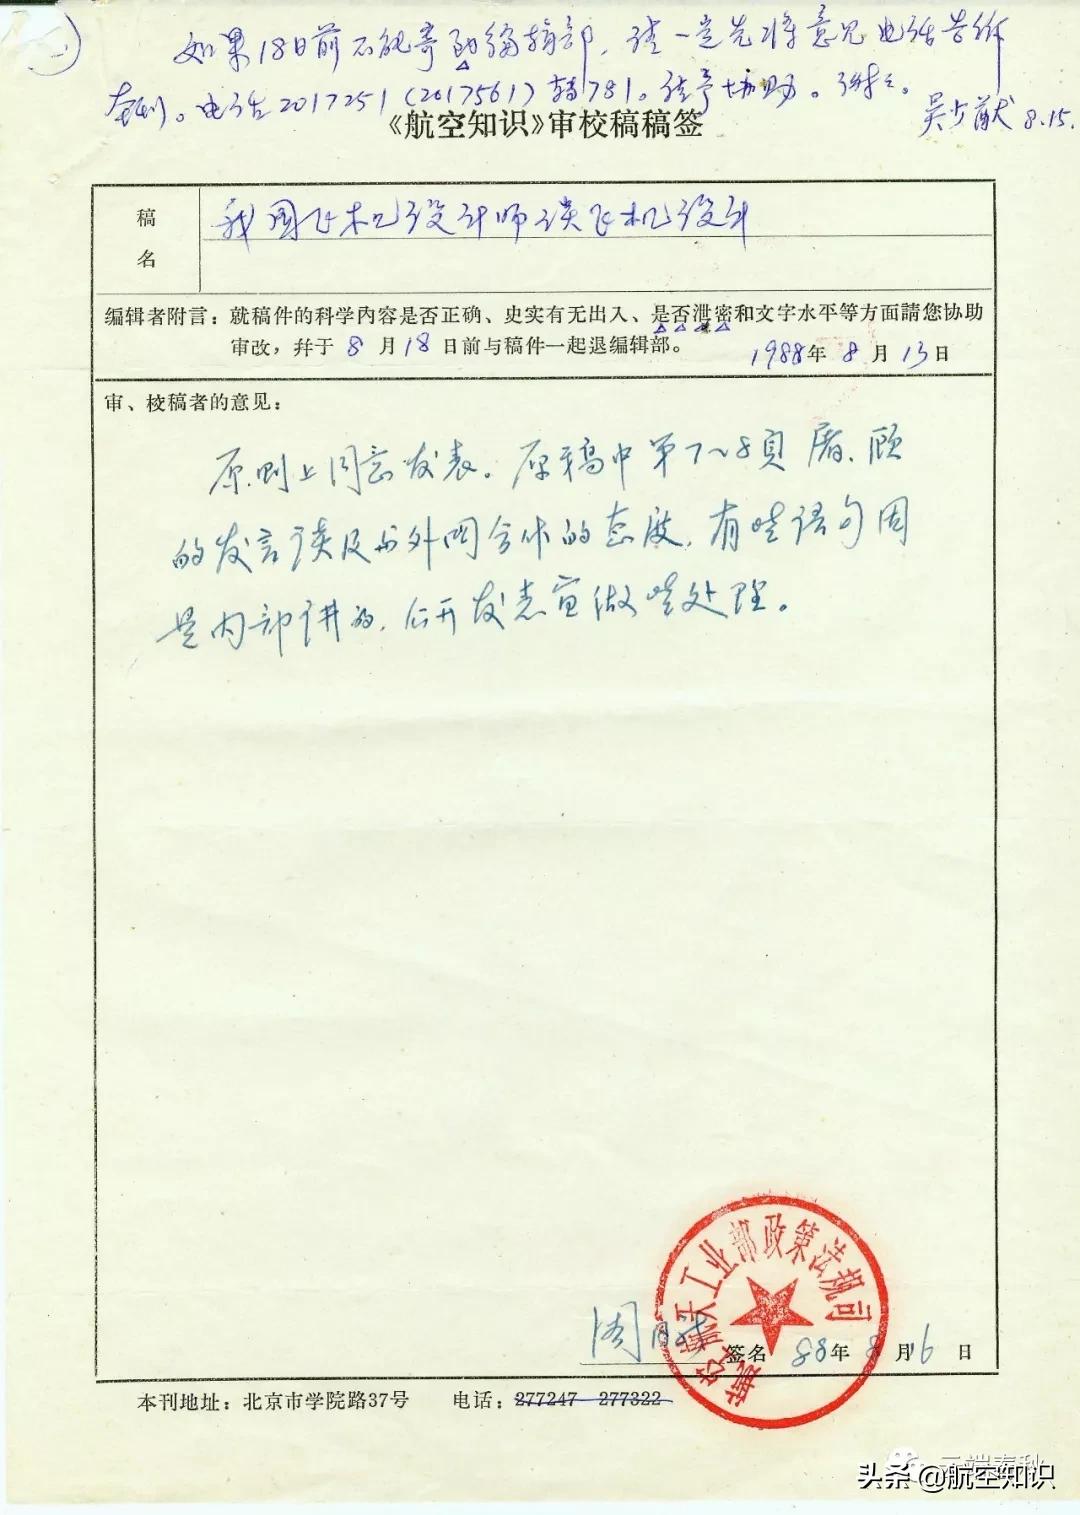 如果18日前不能寄到编辑部，请一定先将意见电话告诉
本刊。电话2017251（2017561）转781。请予协助。谢谢。
吴少猷 8.15.
《航空知识》审校稿稿签
稿名
我国飞机设计师谈飞机设计
编辑者附言：就稿件的科学内容是否正确、史实有无出入、是否泄密和文字水平等方面請您协助
审改，幷于8月18日前与稿件一起退编辑部。
1988年8月13日
审、校稿者的意见：
原则上同意发表。原稿中第7～8页屠、顾
的发言谈及与外国合作的态度，有些语句因
是内部讲的，公开发表宜做些处理。
航空航天工业部政策法规司
周
签名 88年8月16日
本刊地址：北京市学院路37号 电话：277247 277322
头条 @航空知识